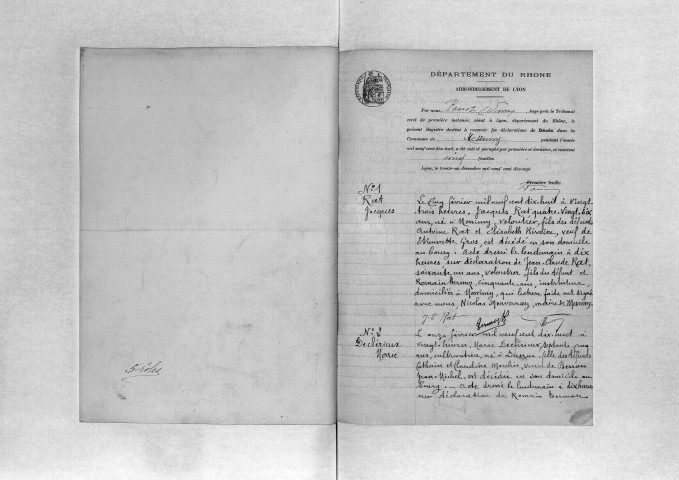 5 rôles
DÉPARTEMENT DU RHONE
ARRONDISSEMENT DE LYON
Par nous, Juge près le Tribunal
civil de première instance, séant à Lyon, département du Rhône, le
présent Registre destiné à recevoir les déclarations de Décès dans la
Commune de Messimy pendant l'année
mil neuf cent dix-huit, a été coté et paraphé par première et dernière, et contient
cinq feuilles.
Lyon, le trente-un décembre mil neuf cent dix-sept
Première feuille
N° 1
Rat
Jacques
Le cinq février mil neuf cent dix huit à vingt
trois heures, Jacques Rat quatre-vingt-dix
ans, né à Messimy, veloutier, fils des défunts
Antoine Rat et Elisabeth Rivoire, veuf de
Etiennette Gros, est décédé en son domicile
au bourg. Acte dressé le lendemain à dix
heures sur déclaration de Jean-Claude Rat,
soixante un ans, veloutier, fils du défunt et
Romain cinquante ans, instituteur,
domiciliés à Messimy, qui lecture faite ont signé
avec nous, Nicolas maire de Messimy.
J C Rat
N° 2
Declérieux
Marie
Le onze février mil neuf cent dix-huit à
vingt heures, Marie Declérieux, septante cinq
ans, cultivatrice, née à fille des défunts
et Claudine Moulin, veuve de
Jean Michel, est décédée en son domicile au
bourg. - Acte dressé le lendemain à dix heures
sur déclaration de Romain